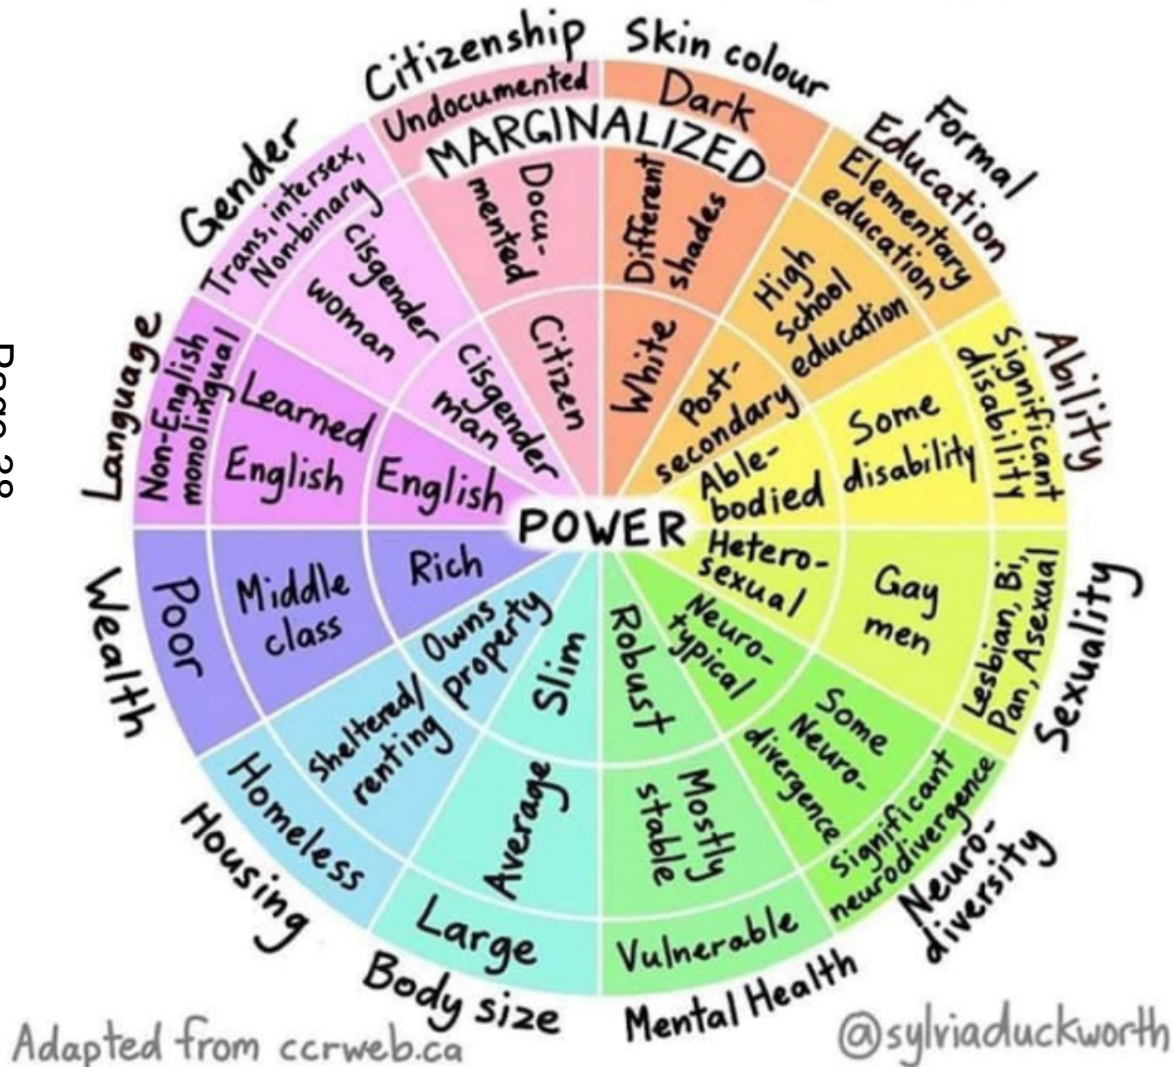 Citizenship
Undocumented
Docu-
mented
Citizen
Skin colour
Dark
Different
shades
White
MARGINALIZED
Formal
Education
Elementary
education
High
school
education
Post-
secondary
Ability
Significant
disability
Some
disability
Able-
bodied
Sexuality
Lesbian, Bi,
Pan, Asexual
Gay
men
Hetero-
sexual
Neuro-
diversity
Significant
neurodivergence
Some
Neuro-
divergence
Neuro-
typical
Mental Health
Vulnerable
Mostly
stable
Robust
Body size
Large
Average
Slim
Housing
Homeless
Sheltered/
renting
Owns
property
Wealth
Poor
Middle
class
Rich
Language
Non-English
monolingual
Learned
English
English
Gender
Trans, intersex,
Non-binary
cisgender
woman
cisgender
man
POWER
Adapted from ccrweb.ca
@sylviaduckworth